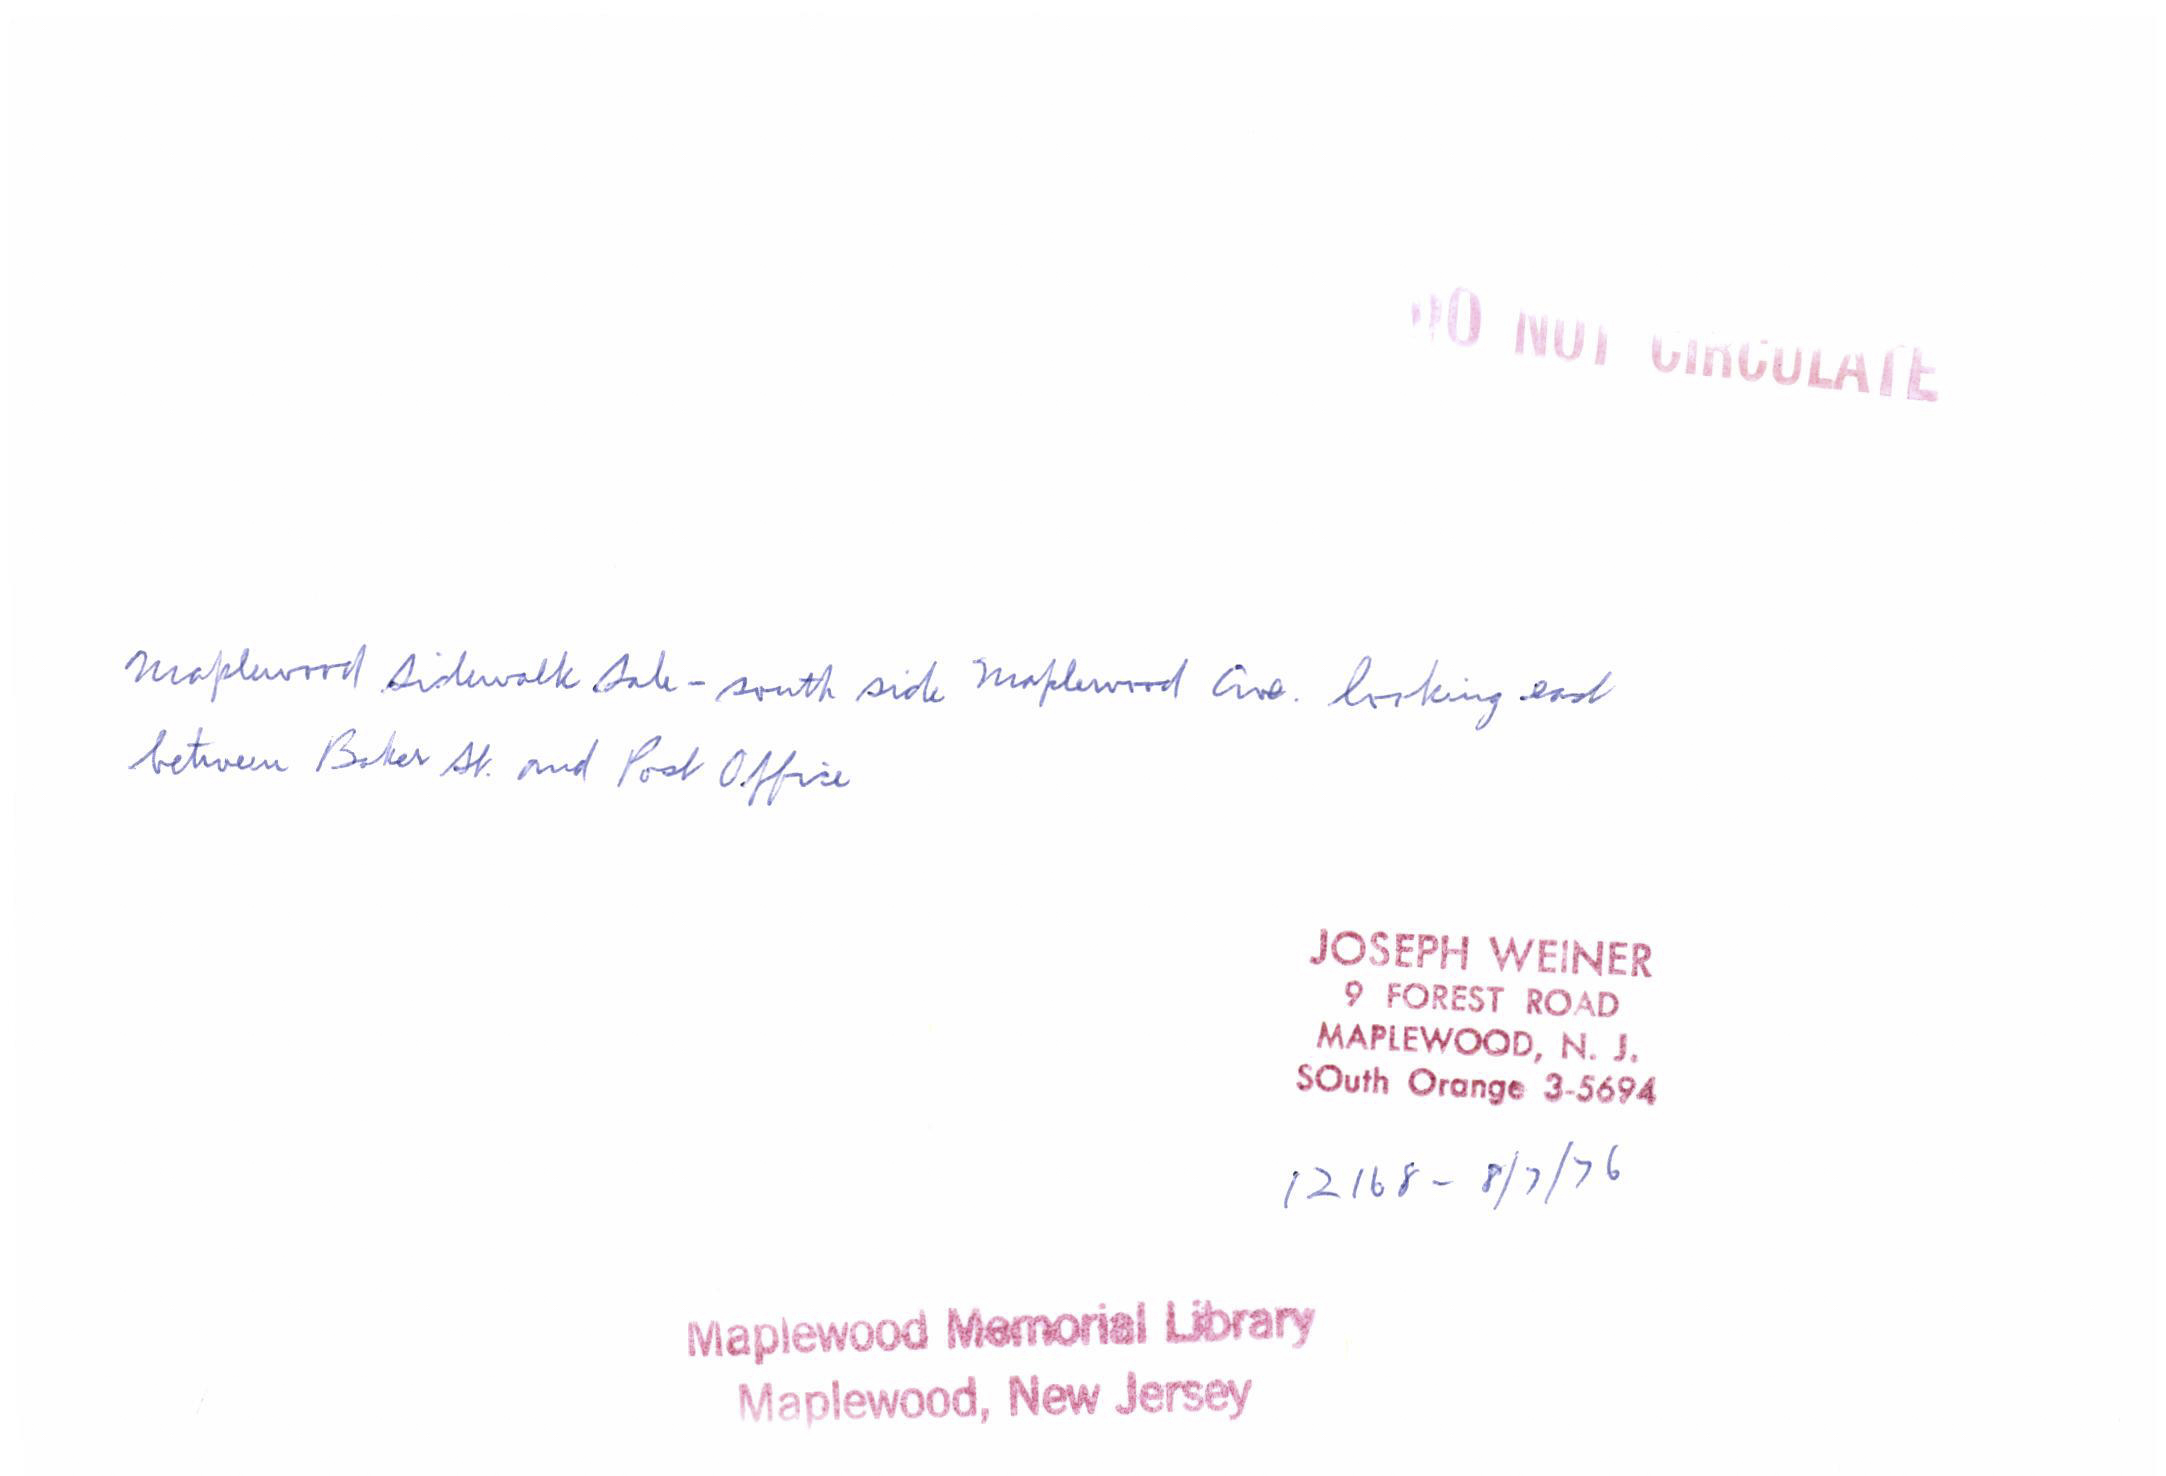 DO NOT CIRCULATE
Maplewood Sidewalk Sale - south side Maplewood Ave. looking east
between Baker St. and Post Office
JOSEPH WEINER
9 FOREST ROAD
MAPLEWOOD, N. J.
SOuth Orange 3-5694
12168 - 8/7/76
Maplewood Memorial Library
Maplewood, New Jersey